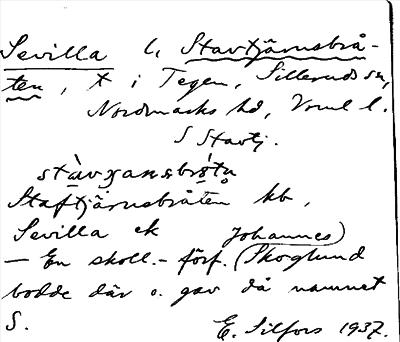 Sevilla l. Stavtjärnsbrå-
ten, t i Tegen, Sillerud sn,
Nordmarks hd, Vrml l.
S Stavtj.
stàvȷansbrótn
Staftjärnsbråten kb,
Sevilla ek Johannes)
— En skoll.- förf. (Skoglund
bodde där o. gav då namnet
S. E. Silfors 1937.